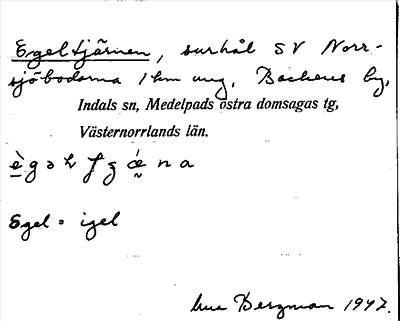 Egeltjärnen, surhål SV Norr-
sjöbodarna 1 km ung. Backens by,
Indals sn, Medelpads östra domsagas tg,
Västernorrlands län.
Egel = igel
Bergman 1947.